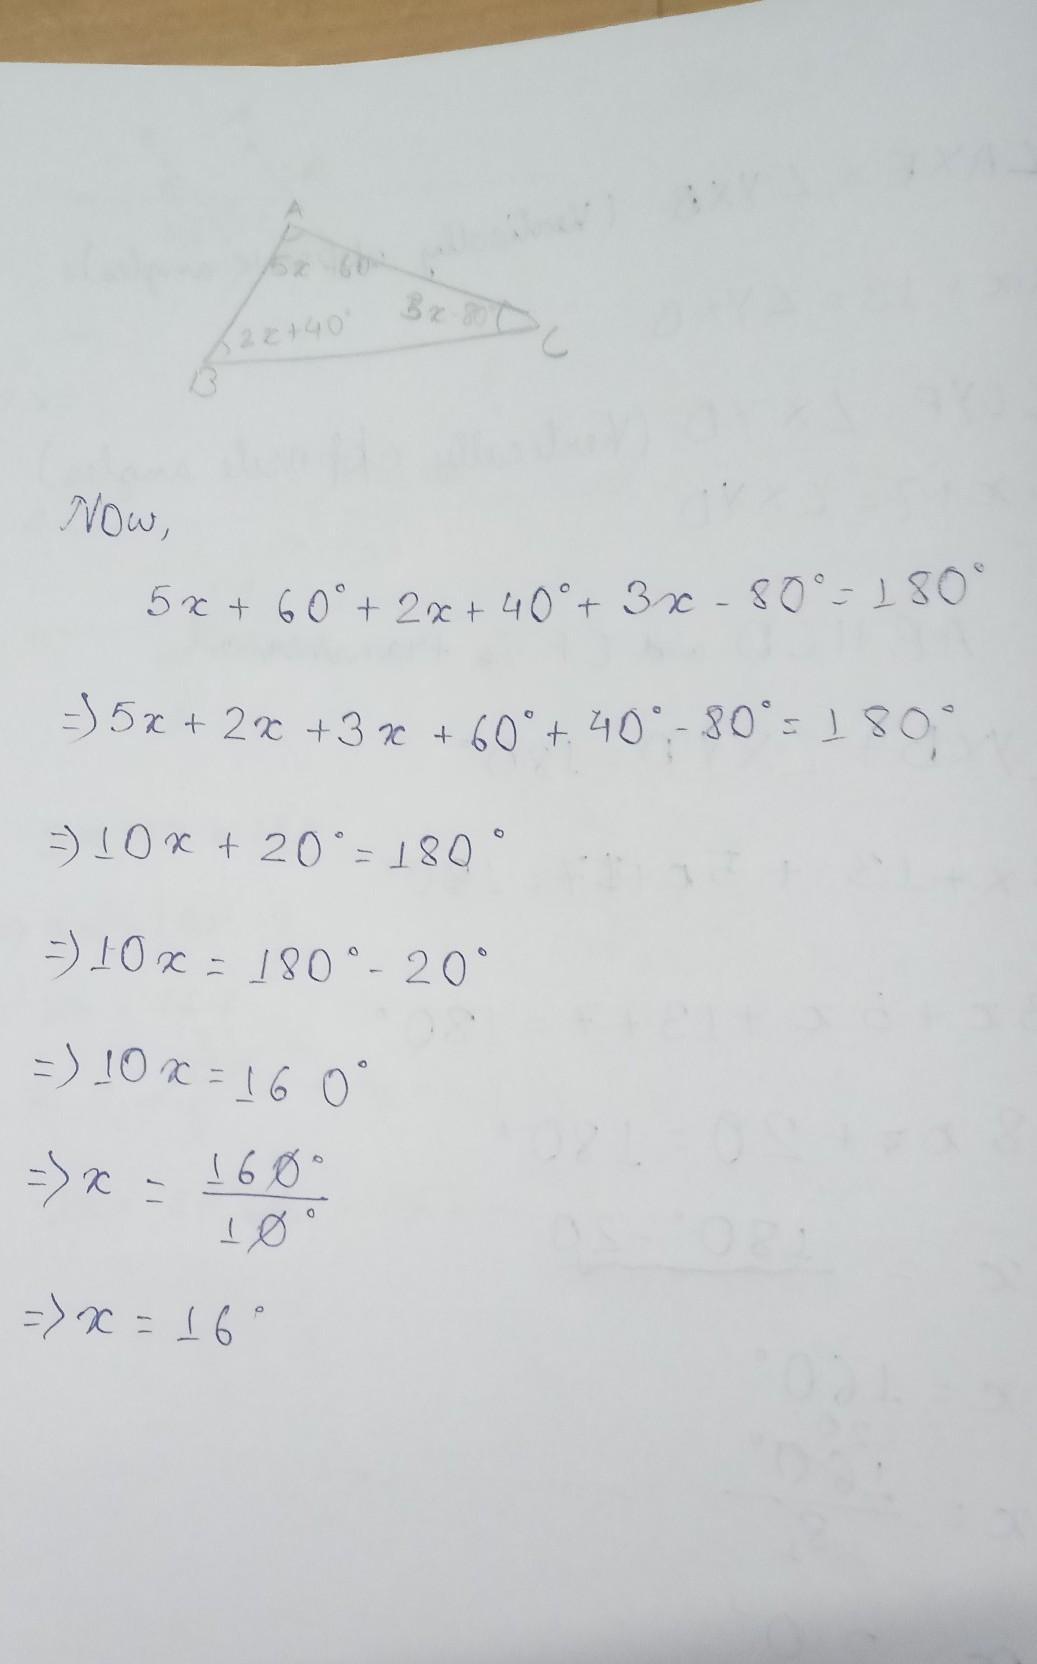 A
5x 60
3x-80°
2x+40°
C
B
Now,
5x + 60° + 2x + 40° + 3x - 80° = 180°
=> 5x + 2x + 3x + 60° + 40° - 80° = 180°
=> 10x + 20° = 180°
=> 10x = 180° - 20°
=> 10x = 160°
=> x = 160°/10°
=> x = 16°